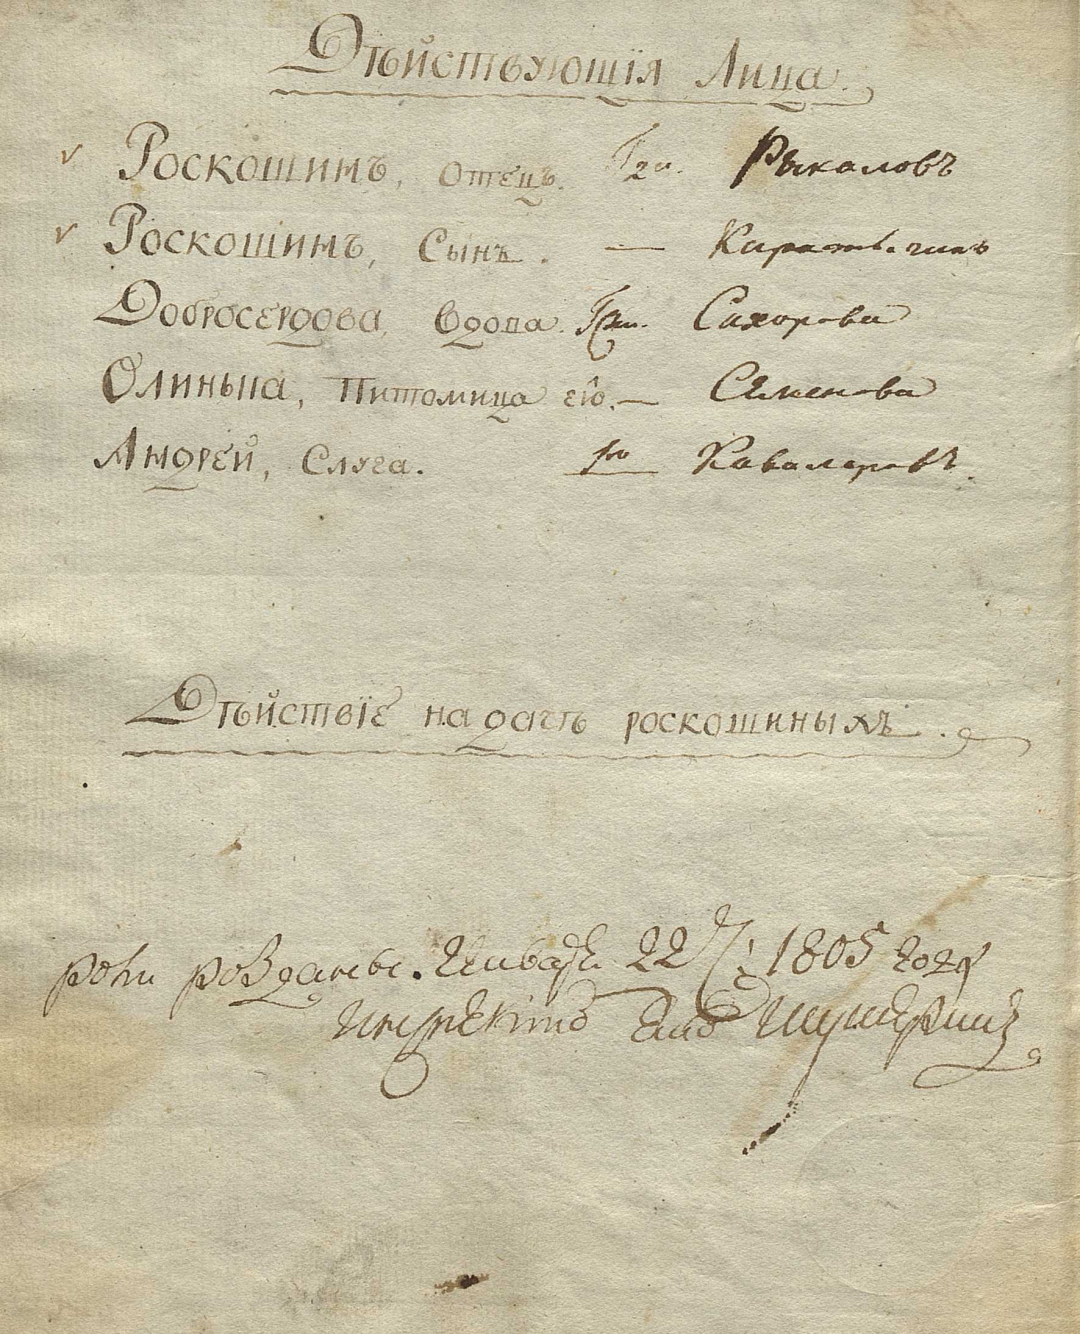 Дѣйствующія Лица.
Роскошинъ, Отецъ. Гдн. Рыкаловъ
Роскошинъ, Сынъ. — Каратыгинъ
Добросердова, Вдова. Гжи. Сахорова
Олинька, Питомица её. — Семенова
Андрей, Слуга. Кавалеровъ.
Дѣйствіе на дачѣ роскошиныхъ.
роли розданы. Генваря 22 1805 году
инспекторъ Шушеринъ